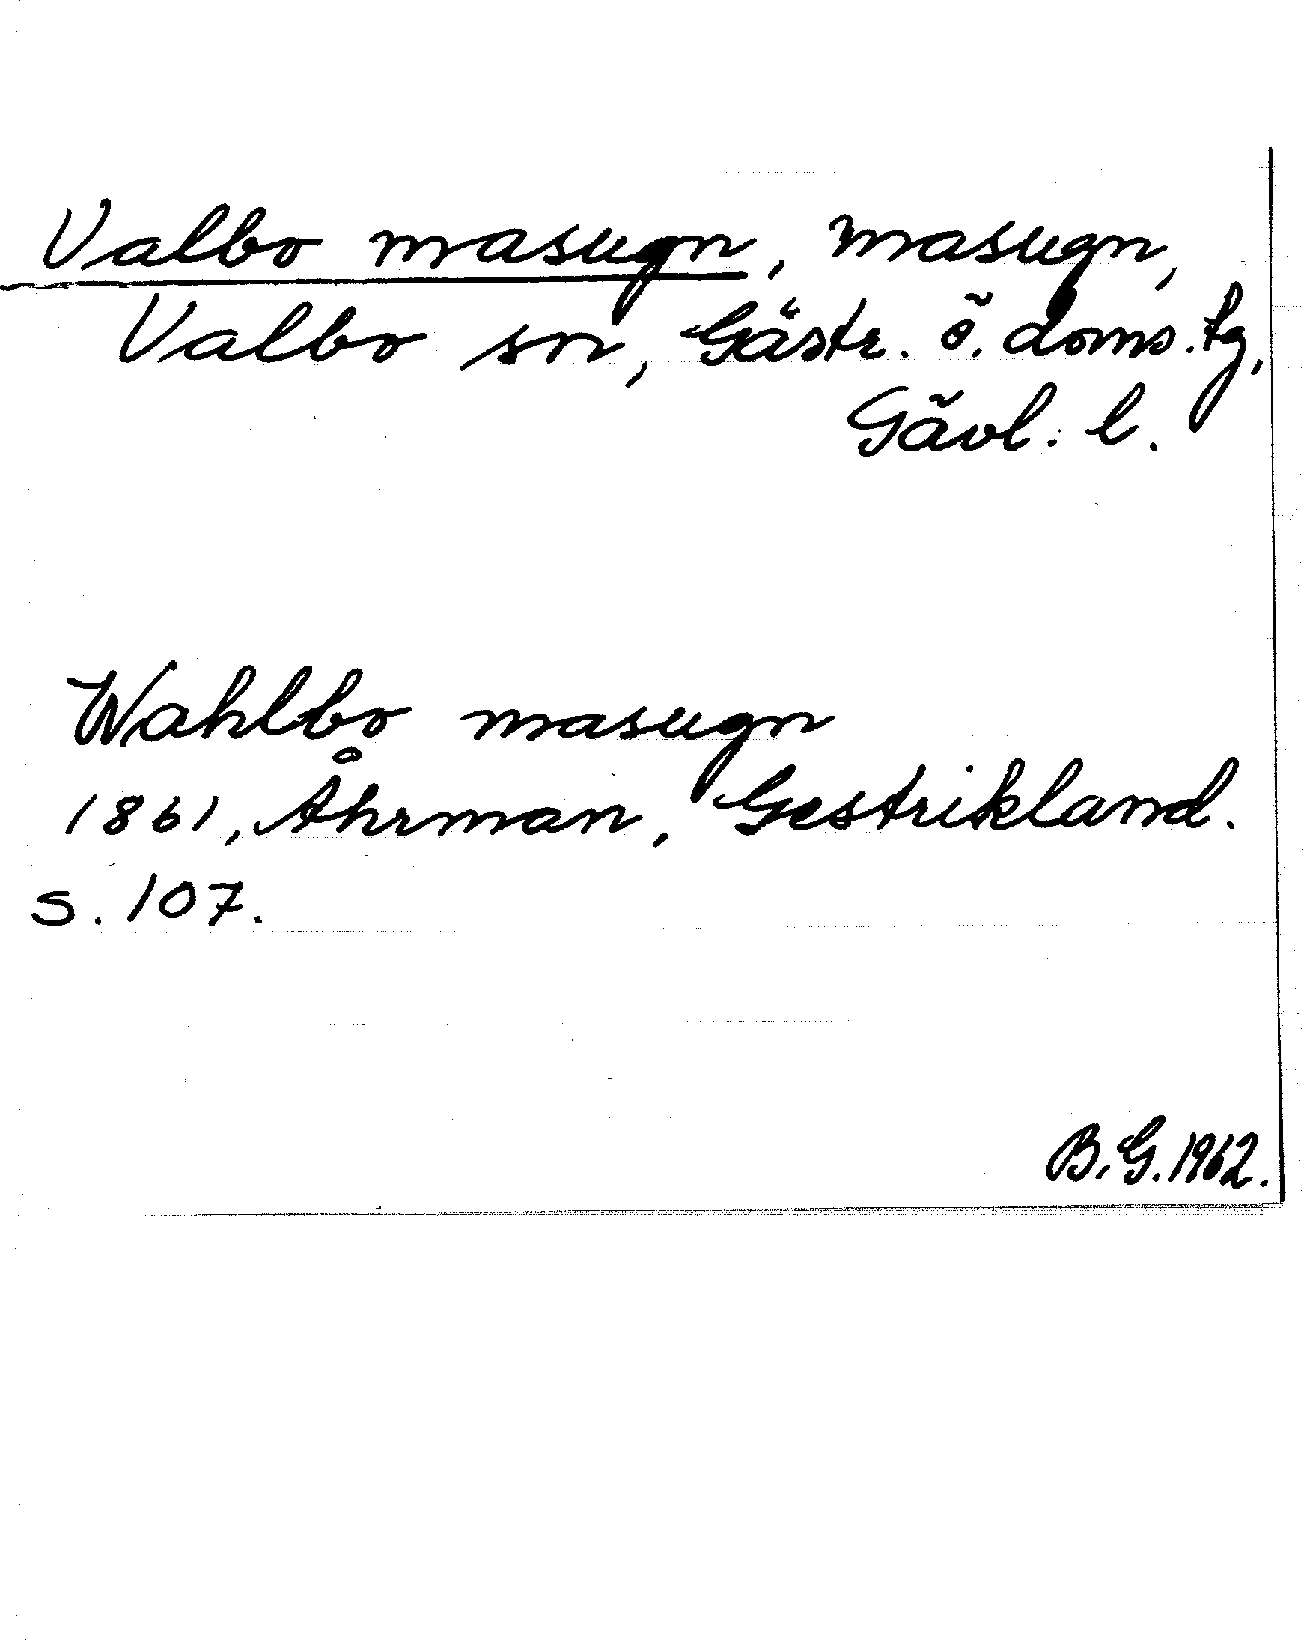 Valbo masugn, masugn,
Valbo sn, Gästr. ö. doms. tg,
Gävl. l.
Wahlbo masugn
1861, Åhrman, Gestrikland.
s. 107.
B. G. 1962.